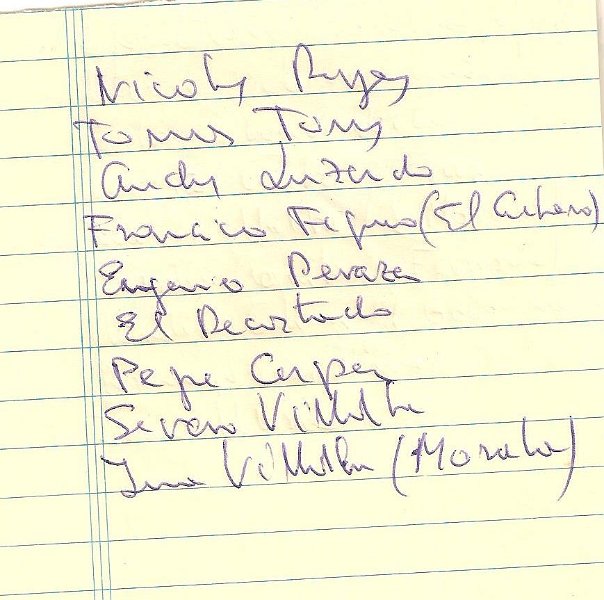 Nicolas Reyes
Tomas Torres
Andy Luzardo
Francisco Figueroa (El Cubano)
Eugenio Peraza
El Recortado
Pepe
Severo Villalba
Villalba (Morala)